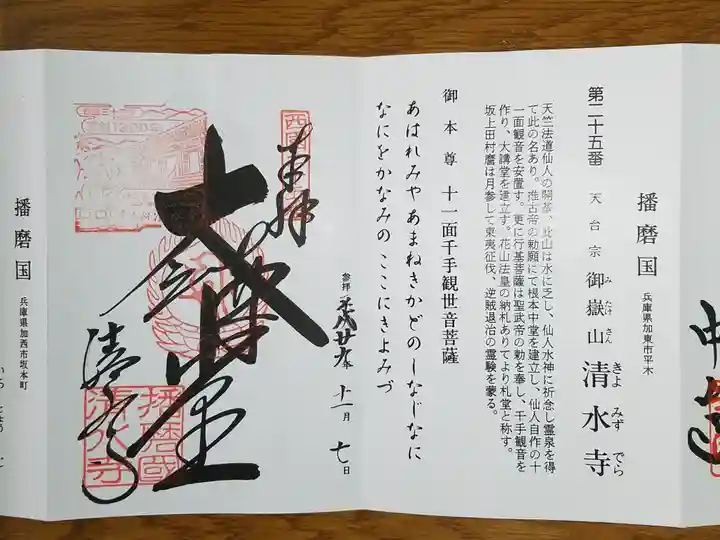 播磨国
兵庫県加東市平木
第二十五番 天台宗 御嶽山 清水寺
み たけ さん きよ みず でら
天竺法道仙人の開基、此山は水に乏し、仙人水神に祈念し霊泉を得
て此の名あり。推古帝の勅願にて根本中堂を建立し、仙人自作の十
一面観音を安置す。更に行基菩薩は聖武帝の勅を奉し、千手観音を
作り、大講堂を建立す。花山法皇の納札ありてより札堂と称す。
坂上田村麿は月参して東夷征伐、逆賊退治の霊験を蒙る。
御本尊 十一面千手観世音菩薩
あはれみやあまねきかどのしなじなに
なにをかなみの ここにきよみづ
参拝 平成廿九年 十一月 七日
奉拝
大講堂
清水寺
播磨國
清水寺
播磨国
兵庫県加西市坂本町